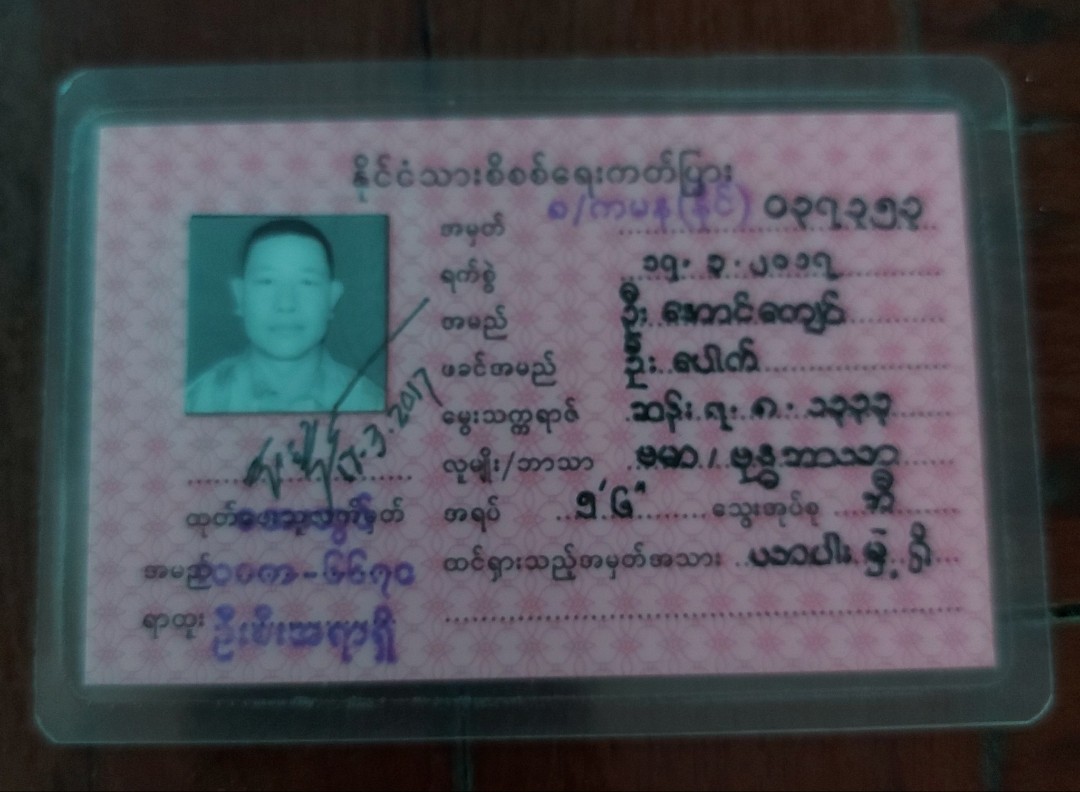 နိုင်ငံသားစိစစ်ရေးကတ်ပြား
အမှတ် ၈/ကမန(နိုင်) ၀၃၇၃၅၃
ရက်စွဲ ၁၅.၃.၂၀၁၇
အမည် ဦးအောင်ကျော်
ဖခင်အမည် ဦးပေါက်
မွေးသက္ကရာဇ် ဆန်း.ရ.၈.၁၃၃၃
လူမျိုး/ဘာသာ ဗမာ/ဗုဒ္ဓဘာသာ
အရပ် ၅'၆" သွေးအုပ်စု အို
ထင်ရှားသည့်အမှတ်အသား ယာပါး မှဲ့ရှိ
3.2017
အမည်
ရာထူး ဦးစီးအရာရှိ